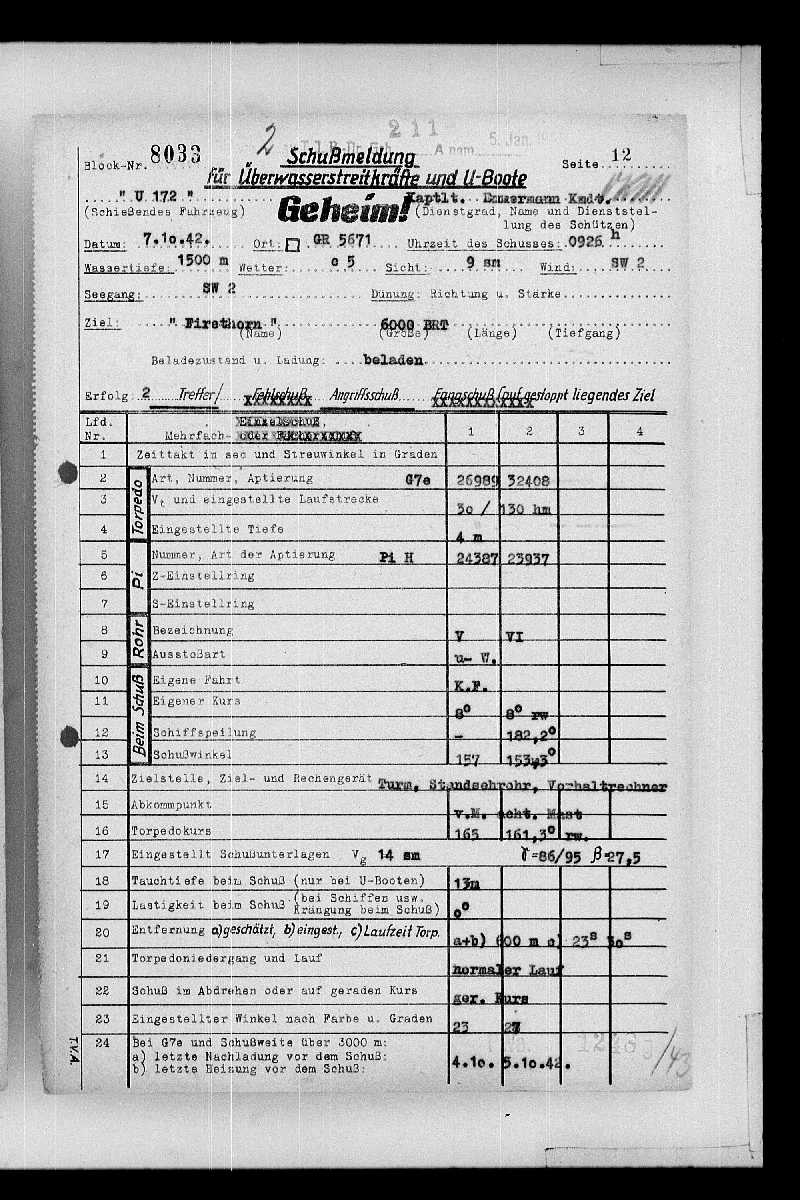 211
5. Jan.
2
Block-Nr. 8033
Schußmeldung
Seite 12
für Überwasserstreitkräfte und U-Boote
" U 172 "
Geheim!
Kaptlt. Emmermann Kmdt.
(Schießendes Fahrzeug)
(Dienstgrad, Name und Dienststel-
lung des Schützen)
Datum: 7.10.42. Ort: GR 5671 Uhrzeit des Schusses: 0926 h
Wassertiefe: 1500 m Wetter: c 5 Sicht: 9 sm Wind: SW 2
Seegang: SW 2 Dünung: Richtung u. Stärke
Ziel: " Firethorn " 6000 BRT
(Name) (Größe) (Länge) (Tiefgang)
Beladezustand u. Ladung: beladen
Erfolg 2 Treffer/ Fehlschuß Angriffsschuß Fangschuß (auf gestoppt liegendes Ziel
Lfd. Nr. Einzelschuß, Mehrfach- oder 1 2 3 4
1 Zeittakt in sec und Streuwinkel in Graden
Torpedo
2 Art, Nummer, Aptierung G7e 26989 32408
3 Vt und eingestellte Laufstrecke 30 / 130 hm
4 Eingestellte Tiefe 4 m
Pi
5 Nummer, Art der Aptierung Pi H 24387 23937
6 Z-Einstellring
7 S-Einstellring
Rohr
8 Bezeichnung V VI
9 Ausstoßart u- W.
Beim Schuß
10 Eigene Fahrt K.F.
11 Eigener Kurs 8° 8° rw
12 Schiffspeilung - 182,2°
13 Schußwinkel 157 153,3°
14 Zielstelle, Ziel- und Rechengerät Turm, Standsehrohr, Vorhaltrechner
15 Abkommpunkt v.M. acht. Mast
16 Torpedokurs 165 161,3° rw.
17 Eingestellt Schußunterlagen Vg 14 sm γ=86/95 β=27,5
18 Tauchtiefe beim Schuß (nur bei U-Booten) 13m
19 Lastigkeit beim Schuß (bei Schiffen usw. Krängung beim Schuß) 0°
20 Entfernung a) geschätzt, b) eingest., c) Laufzeit Torp. a+b) 600 m c) 23s 30s
21 Torpedoniedergang und Lauf normaler Lauf
22 Schuß im Abdrehen oder auf geraden Kurs ger. Kurs
23 Eingestellter Winkel nach Farbe u. Graden 23 27
24 Bei G7e und Schußweite über 3000 m:
a) letzte Nachladung vor dem Schuß:
b) letzte Heizung vor dem Schuß: 4.10. 5.10.42.
T.V.A.
/43